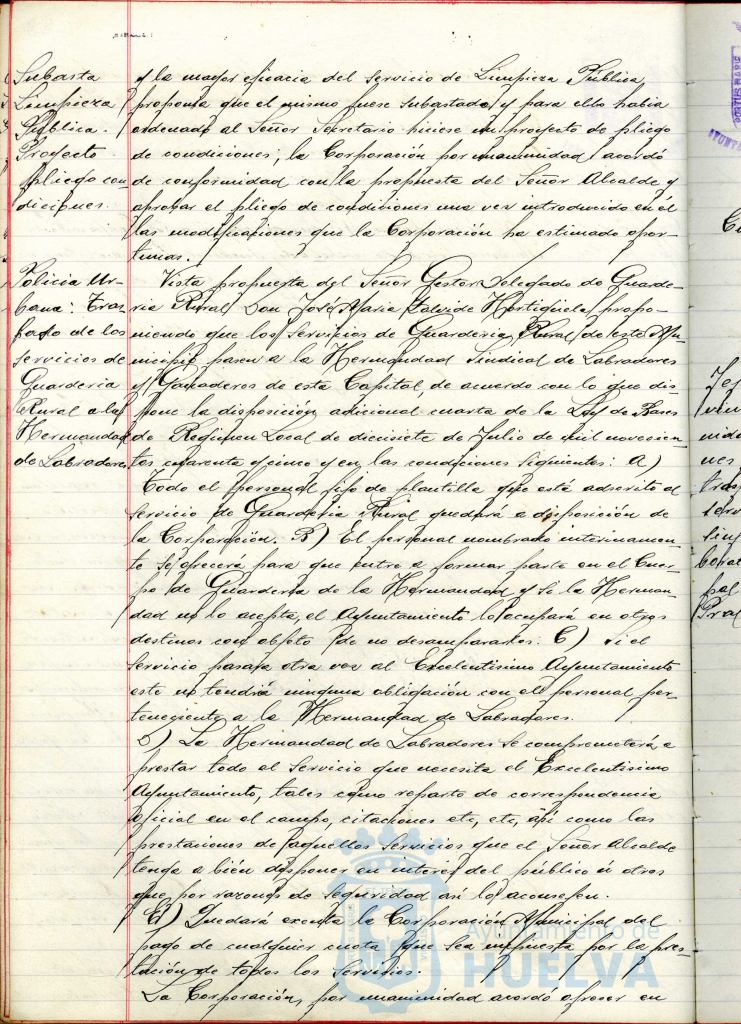 Subasta
Limpieza
Pública.
Proyecto
pliego con-
diciones.
y la mayor eficacia del servicio de Limpieza Pública,
proponía que el mismo fuese subastado, y para ello había
ordenado al Señor Secretario hiciese un proyecto de pliego
de condiciones; la Corporación por unanimidad acordó
de conformidad con la propuesta del Señor Alcalde y
aprobar el pliego de condiciones una vez introducido en él
las modificaciones que la Corporación ha estimado opor-
tunas.
Policia Ur-
bana: Tras-
pado de los
servicios de
Guarderia
Rural a la
Hermandad
de Labradores
Vista propuesta del Señor Gestor Delegado de Guarde-
ria Rural Don José María Hortigüela, propo-
niendo que los servicios de Guarderia Rural de este Mu-
nicipio pasen a la Hermandad Sindical de Labradores
y Ganaderos de esta Capital, de acuerdo con lo que dis-
pone la disposición adicional cuarta de la Ley de Bases
de Regimen Local de diecisiete de Julio de mil novecien-
tos cuarenta y cinco y en las condiciones siguientes: A)
Todo el personal fijo de plantilla que está adscrito al
servicio de Guarderia Rural quedará a disposición de
la Corporación. B) El personal nombrado interinamen-
te se ofrecerá para que entre a formar parte en el Cuer-
po de Guarderia de la Hermandad y si la Herman-
dad no lo acepta, el Ayuntamiento lo ocupará en otros
destinos con objeto de no desampararles. C) si el
servicio pasara otra vez al Excelentisimo Ayuntamiento
este no tendrá ninguna obligación con el personal per-
teneciente a la Hermandad de Labradores.
D) La Hermandad de Labradores se comprometerá a
prestar todo el servicio que necesita el Excelentisimo
Ayuntamiento, tales como reparto de correspondencia
oficial en el campo, citaciones etc, etc, asi como las
prestaciones de aquellos servicios que el Señor Alcalde
tenga a bién disponer en interés del público ú otros
que por razones de seguridad asi lo aconsejen.
E) Quedará exenta la Corporación Municipal del
pago de cualquier cuota que sea impuesta por la pres-
tación de todos los servicios.
La Corporación, por unanimidad acordó ofrecer en
Ayuntamiento de
HUELVA